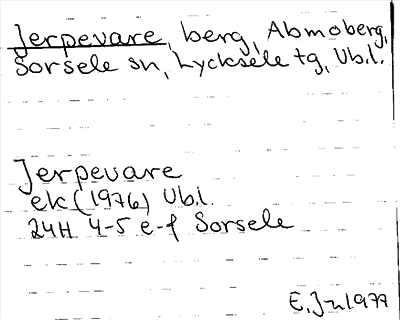 Jerpevare, berg, Abmoberg,
Sorsele sn, Lycksele tg, Vb.l.
Jerpevare
ek (1976) Vb.l.
24H 4-5 e-f Sorsele
E. Jn 1977